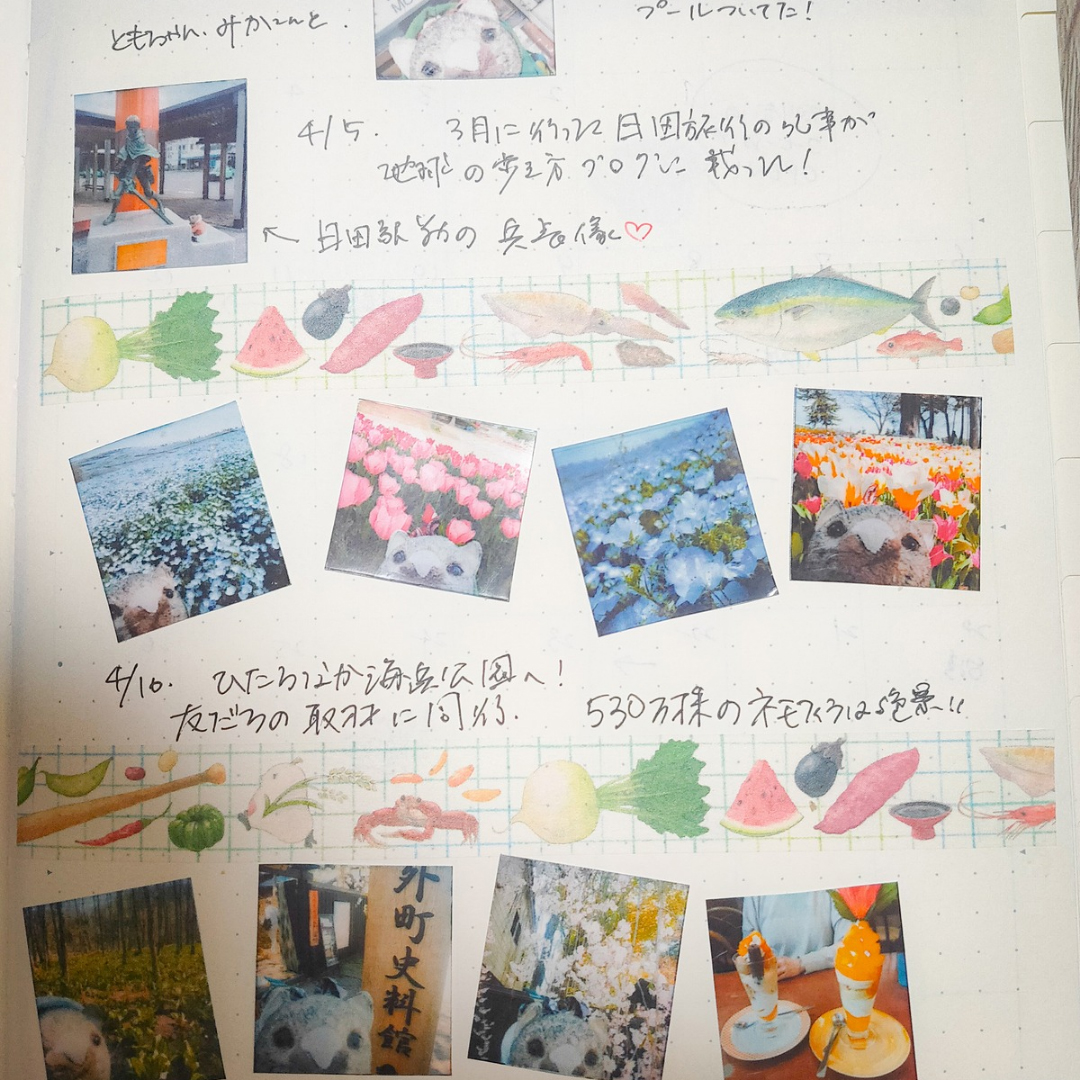 プールついてた!
ともちゃん、みかこんと
4/5. 3月に行った日田旅行の記事が
地球の歩き方ブログに載った!
← 日田駅前の兵長像♡
4/10. ひたちなか海浜公園へ!
友だちの取材に同行.
530万株のネモフィラは絶景!!
外町史料館